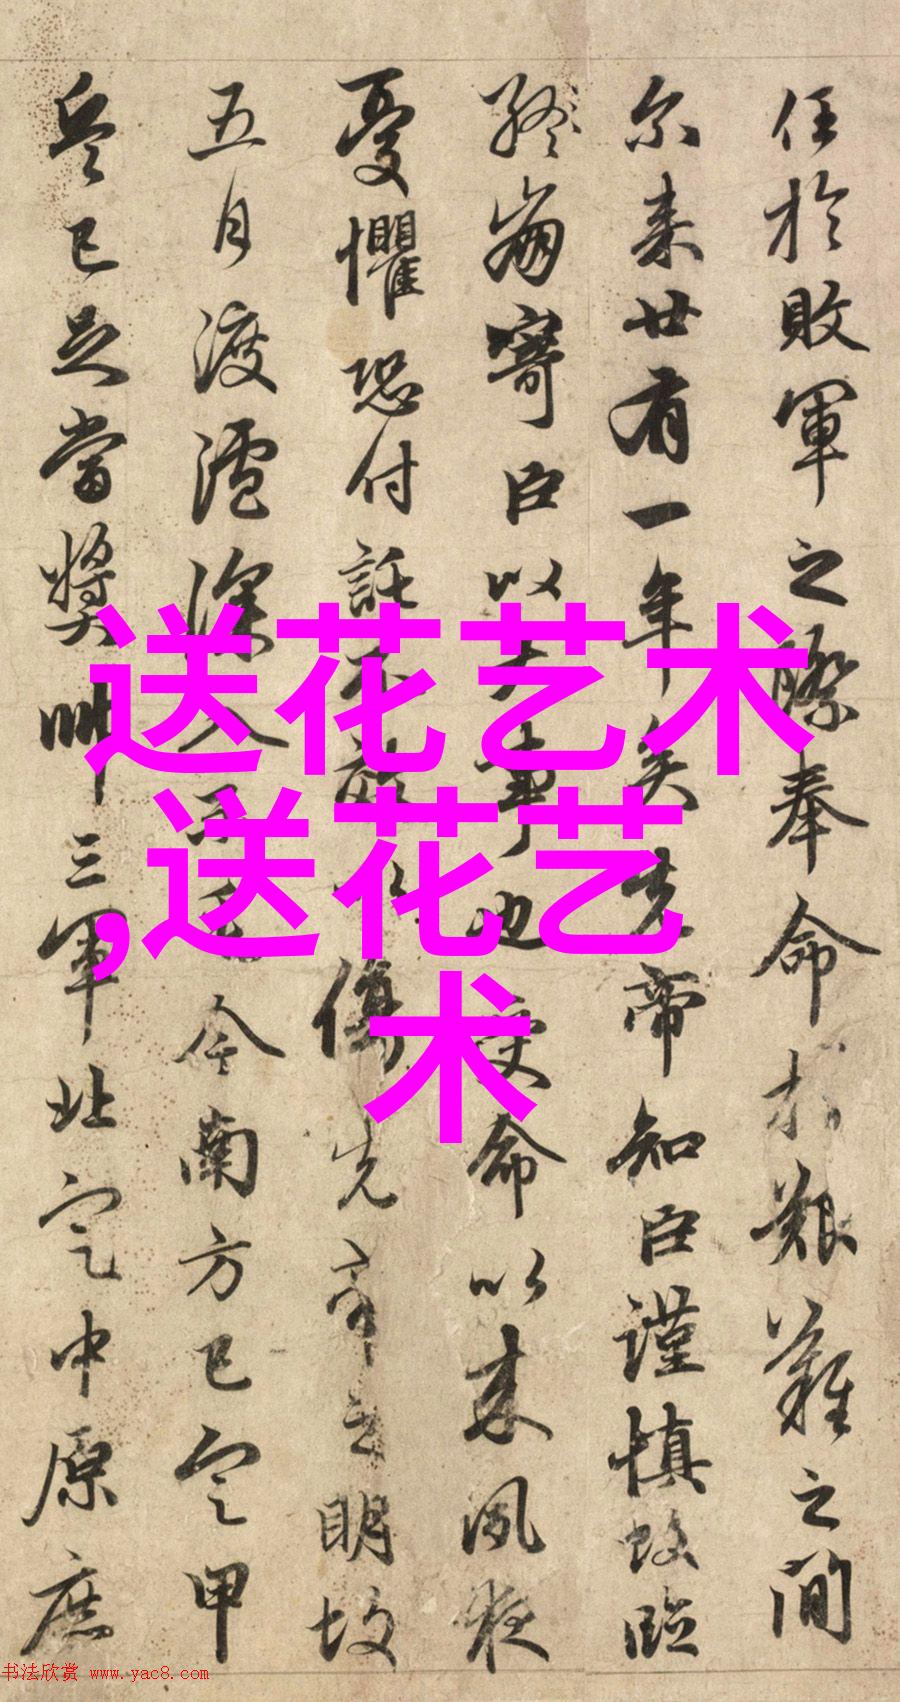 任於敗軍之際奉命於艱難之間
尓来廿有一年矣先帝知臣謹慎故臨
終崩寄臣以大事也受命以来夙夜
憂懼恐付託不效以傷先帝之明故
五月渡瀘深入不毛今南方已定甲
兵已足當奬帥三軍北定中原庶
送花艺术
,送花艺
术
书法欣赏 www.yac8.com